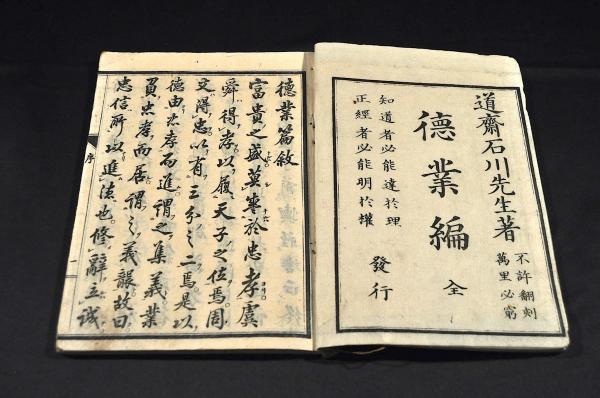 道齋石川先生著
不許翻刻
萬里必窮
德業編 全
知道者必能達於理
正經者必能明於權
發行
德業篇敘
富貴之盛莫於忠孝虞
舜得孝以履天子之位焉周
文得忠以有三分之二焉是以
德由忠孝而進謂之集義業
忠孝而居謂之義襲故曰
忠信所以進德也修辭立誠
序